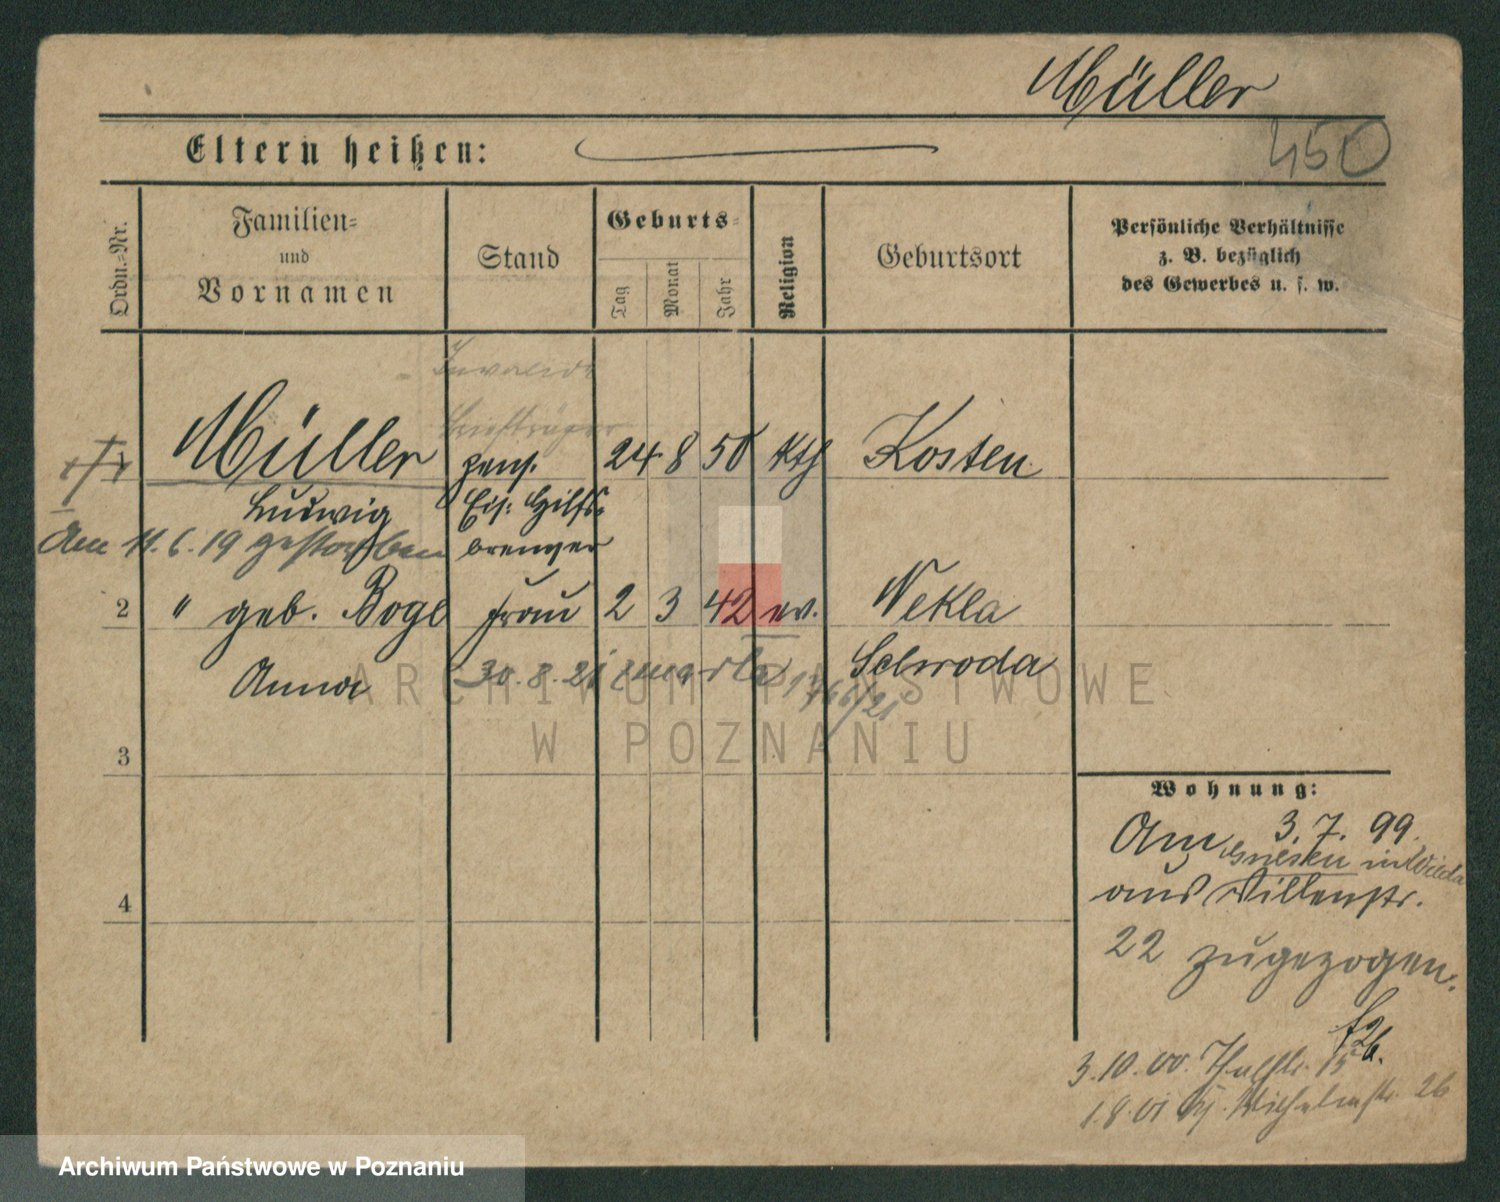 Müller
450
Eltern heißen:
Ordn.=Nr.
Familien=
und
Vornamen
Stand
Geburts=
Tag
Monat
Jahr
Religion
Geburtsort
Persönliche Verhältnisse
z. B. bezüglich
des Gewerbes u. s. w.
Invalide
Briefträger
1 Müller pens. 24 8 50 kth Kosten
Ludwig Eis: Hilfs=
Am 11.6.19 gestorben
2 " geb. Boge Frau 2 3 42 ev. Nekla
Anna 30.8.21 Schroda
3
4
Wohnung:
Am 3.7.99.
in Wilda
aus Villenstr.
22 zugezogen.
3.10.00. Thalstr. 15
1.8.01 Wilhelmstr. 26
ARCHIWUM PAŃSTWOWE
W POZNANIU
Archiwum Państwowe w Poznaniu